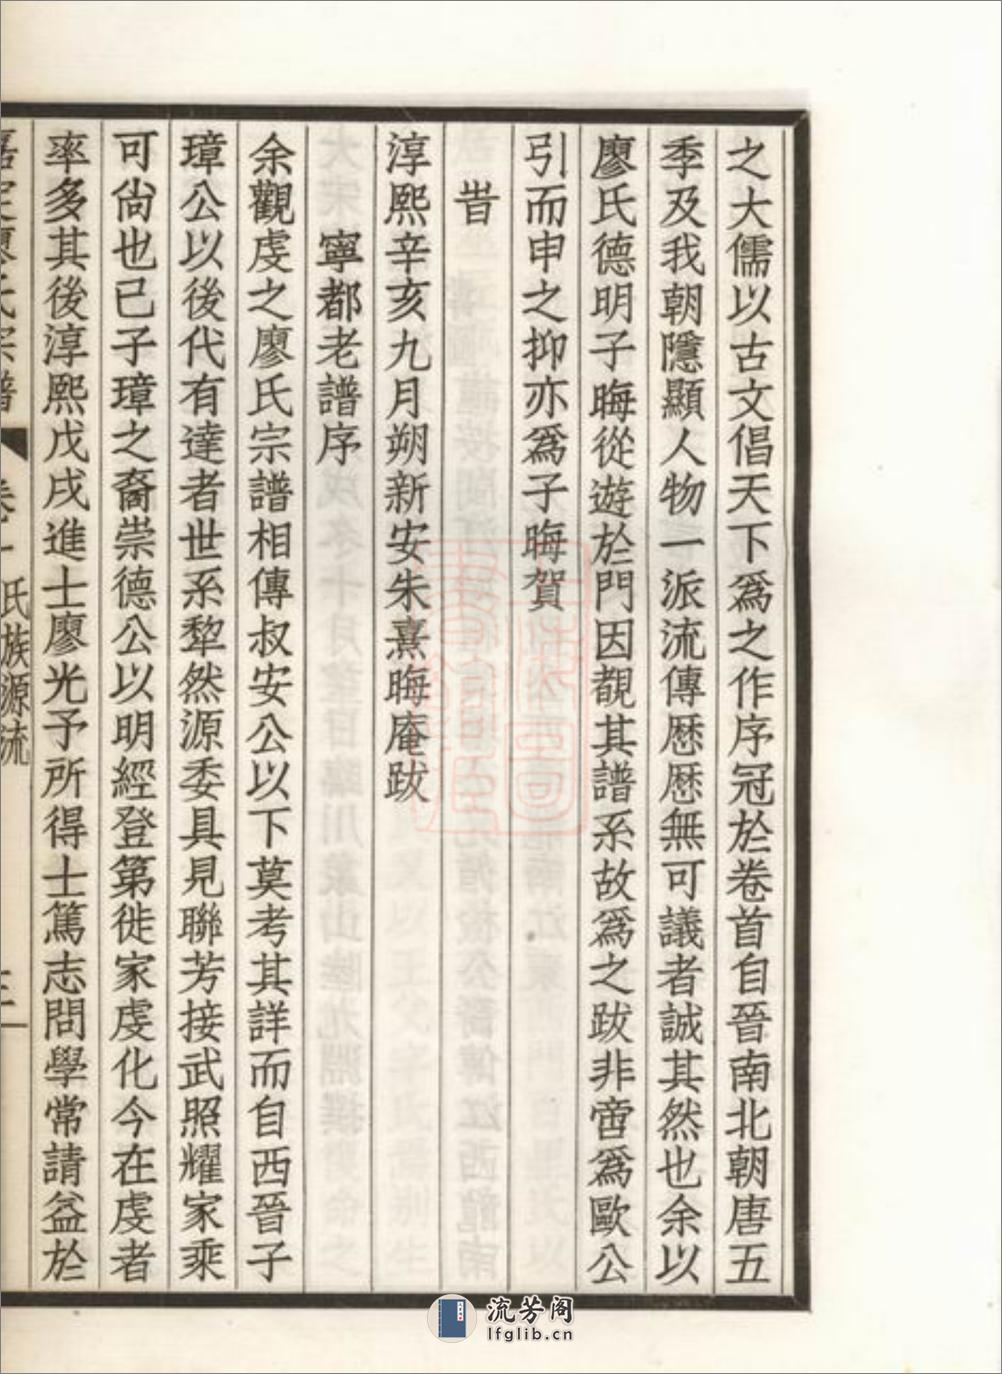 之大儒以古文倡天下爲之作序冠於卷首自晉南北朝唐五
季及我朝隱顯人物一派流傳歷歷無可議者誠其然也余以
廖氏德明子晦從遊於門因覩其譜系故爲之跋非啻爲歐公
引而申之抑亦爲子晦賀
旹
淳熙辛亥九月朔新安朱熹晦庵跋
寧都老譜序
余觀虔之廖氏宗譜相傳叔安公以下莫考其詳而自西晉子
璋公以後代有達者世系犂然源委具見聯芳接武照耀家乘
可尙也已子璋之裔崇德公以明經登第徙家虔化今在虔者
率多其後淳熙戊戌進士廖光予所得士篤志問學常請益於
氏族源流
流芳阁
lfglib.cn